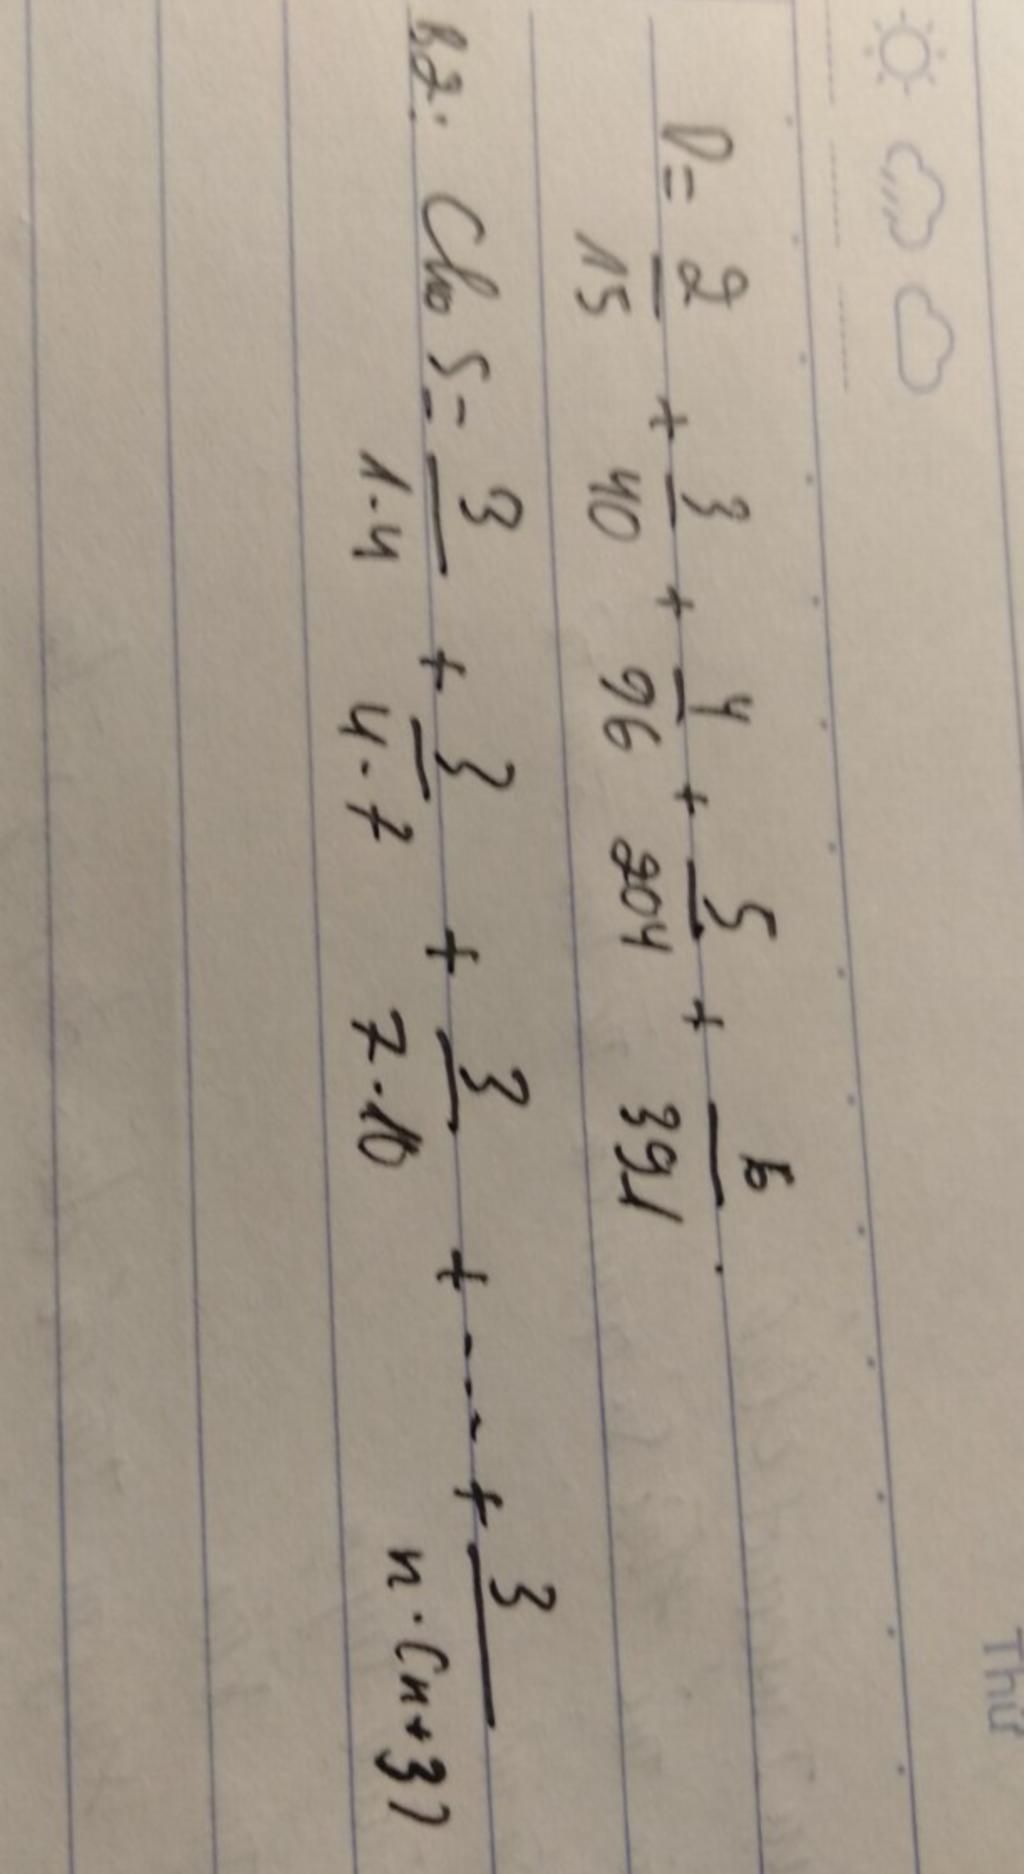 Thứ
D = 2/15 + 3/40 + 4/96 + 5/204 + 6/391.
B2: Cho S = 3/1.4 + 3/4.7 + 3/7.10 + ---- + 3/n.(n+3)